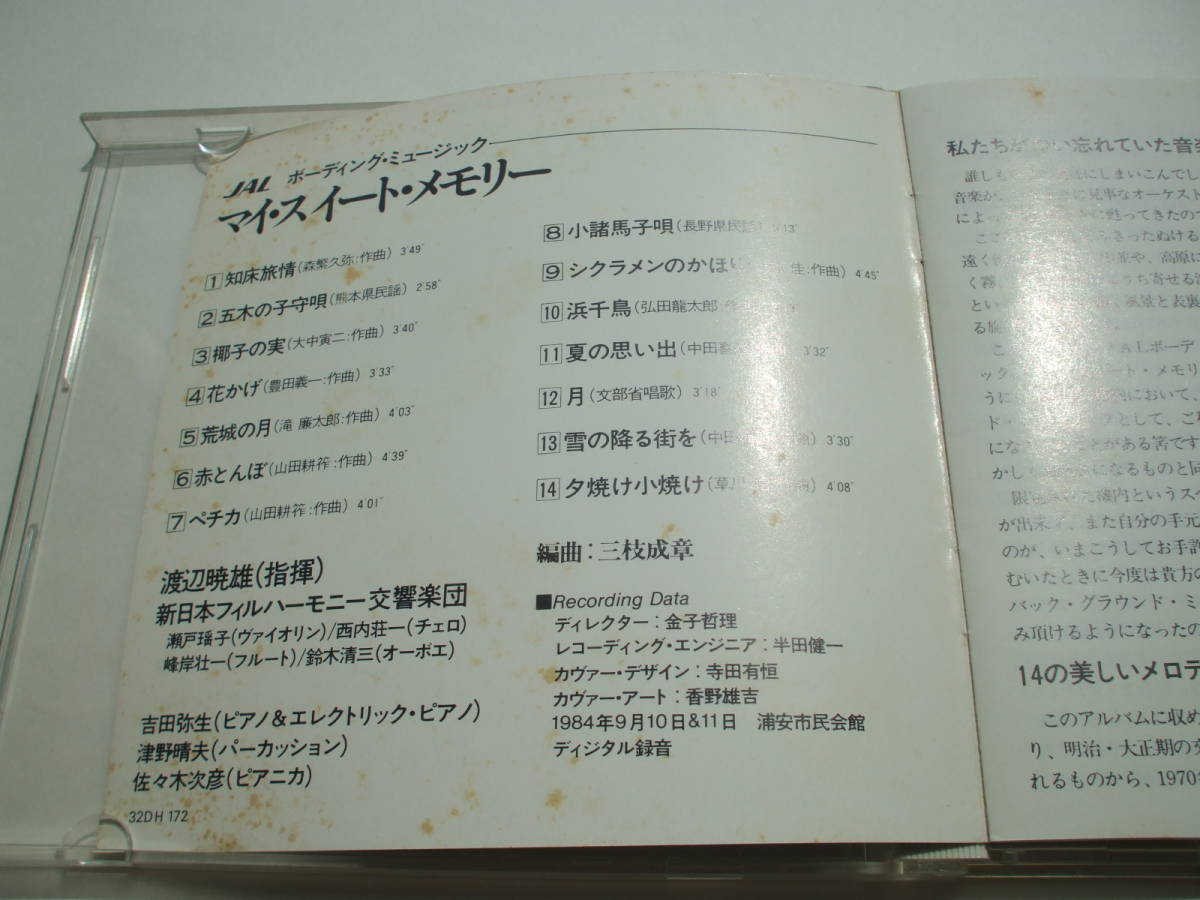 JAL ボーディング・ミュージック
マイ・スイート・メモリー
1 知床旅情(森繁久弥:作曲) 3'49"
2 五木の子守唄(熊本県民謡) 2'58"
3 椰子の実(大中寅二:作曲) 3'40"
4 花かげ(豊田義一:作曲) 3'33"
5 荒城の月(滝 廉太郎:作曲) 4'03"
6 赤とんぼ(山田耕筰:作曲) 4'39"
7 ペチカ(山田耕筰:作曲) 4'01"
8 小諸馬子唄(長野県民謡) 13"
9 シクラメンのかほり 佳:作曲) 4'45"
10 浜千鳥(弘田龍太郎:
11 夏の思い出(中田 3'32"
12 月(文部省唱歌) 3'18"
13 雪の降る街を(中田 3'30"
14 夕焼け小焼け(草川 4'08"
渡辺暁雄(指揮)
新日本フィルハーモニー交響楽団
瀬戸瑤子(ヴァイオリン)/西内荘一(チェロ)
峰岸壮一(フルート)/鈴木清三(オーボエ)
吉田弥生(ピアノ&エレクトリック・ピアノ)
津野晴夫(パーカッション)
佐々木次彦(ピアニカ)
32DH 172
編曲:三枝成章
■Recording Data
ディレクター:金子哲理
レコーディング・エンジニア:半田健一
カヴァー・デザイン:寺田有恒
カヴァー・アート:香野雄吉
1984年9月10日&11日 浦安市民会館
ディジタル録音
私たちが い忘れていた音楽
誰しも にしまいこんでし
音楽が 見事なオーケスト
によっ 甦ってきたので
ここ きったぬける
遠く や、高原に
く霧 うち寄せる
とい 風景と表裏
る旅
こ ALボーデ
ック ート・メモリ
うに において、
ド・ として、ご
にな ことがある筈です
かし になるものと同
限 た機内というス
が出来 、また自分の手元
のが、いまこうしてお手許
むいたときに今度は貴方の
バック・グラウンド・ミ
み頂けるようになったの
14の美しいメロデ
このアルバムに収め
り、明治・大正期の
れるものから、1970